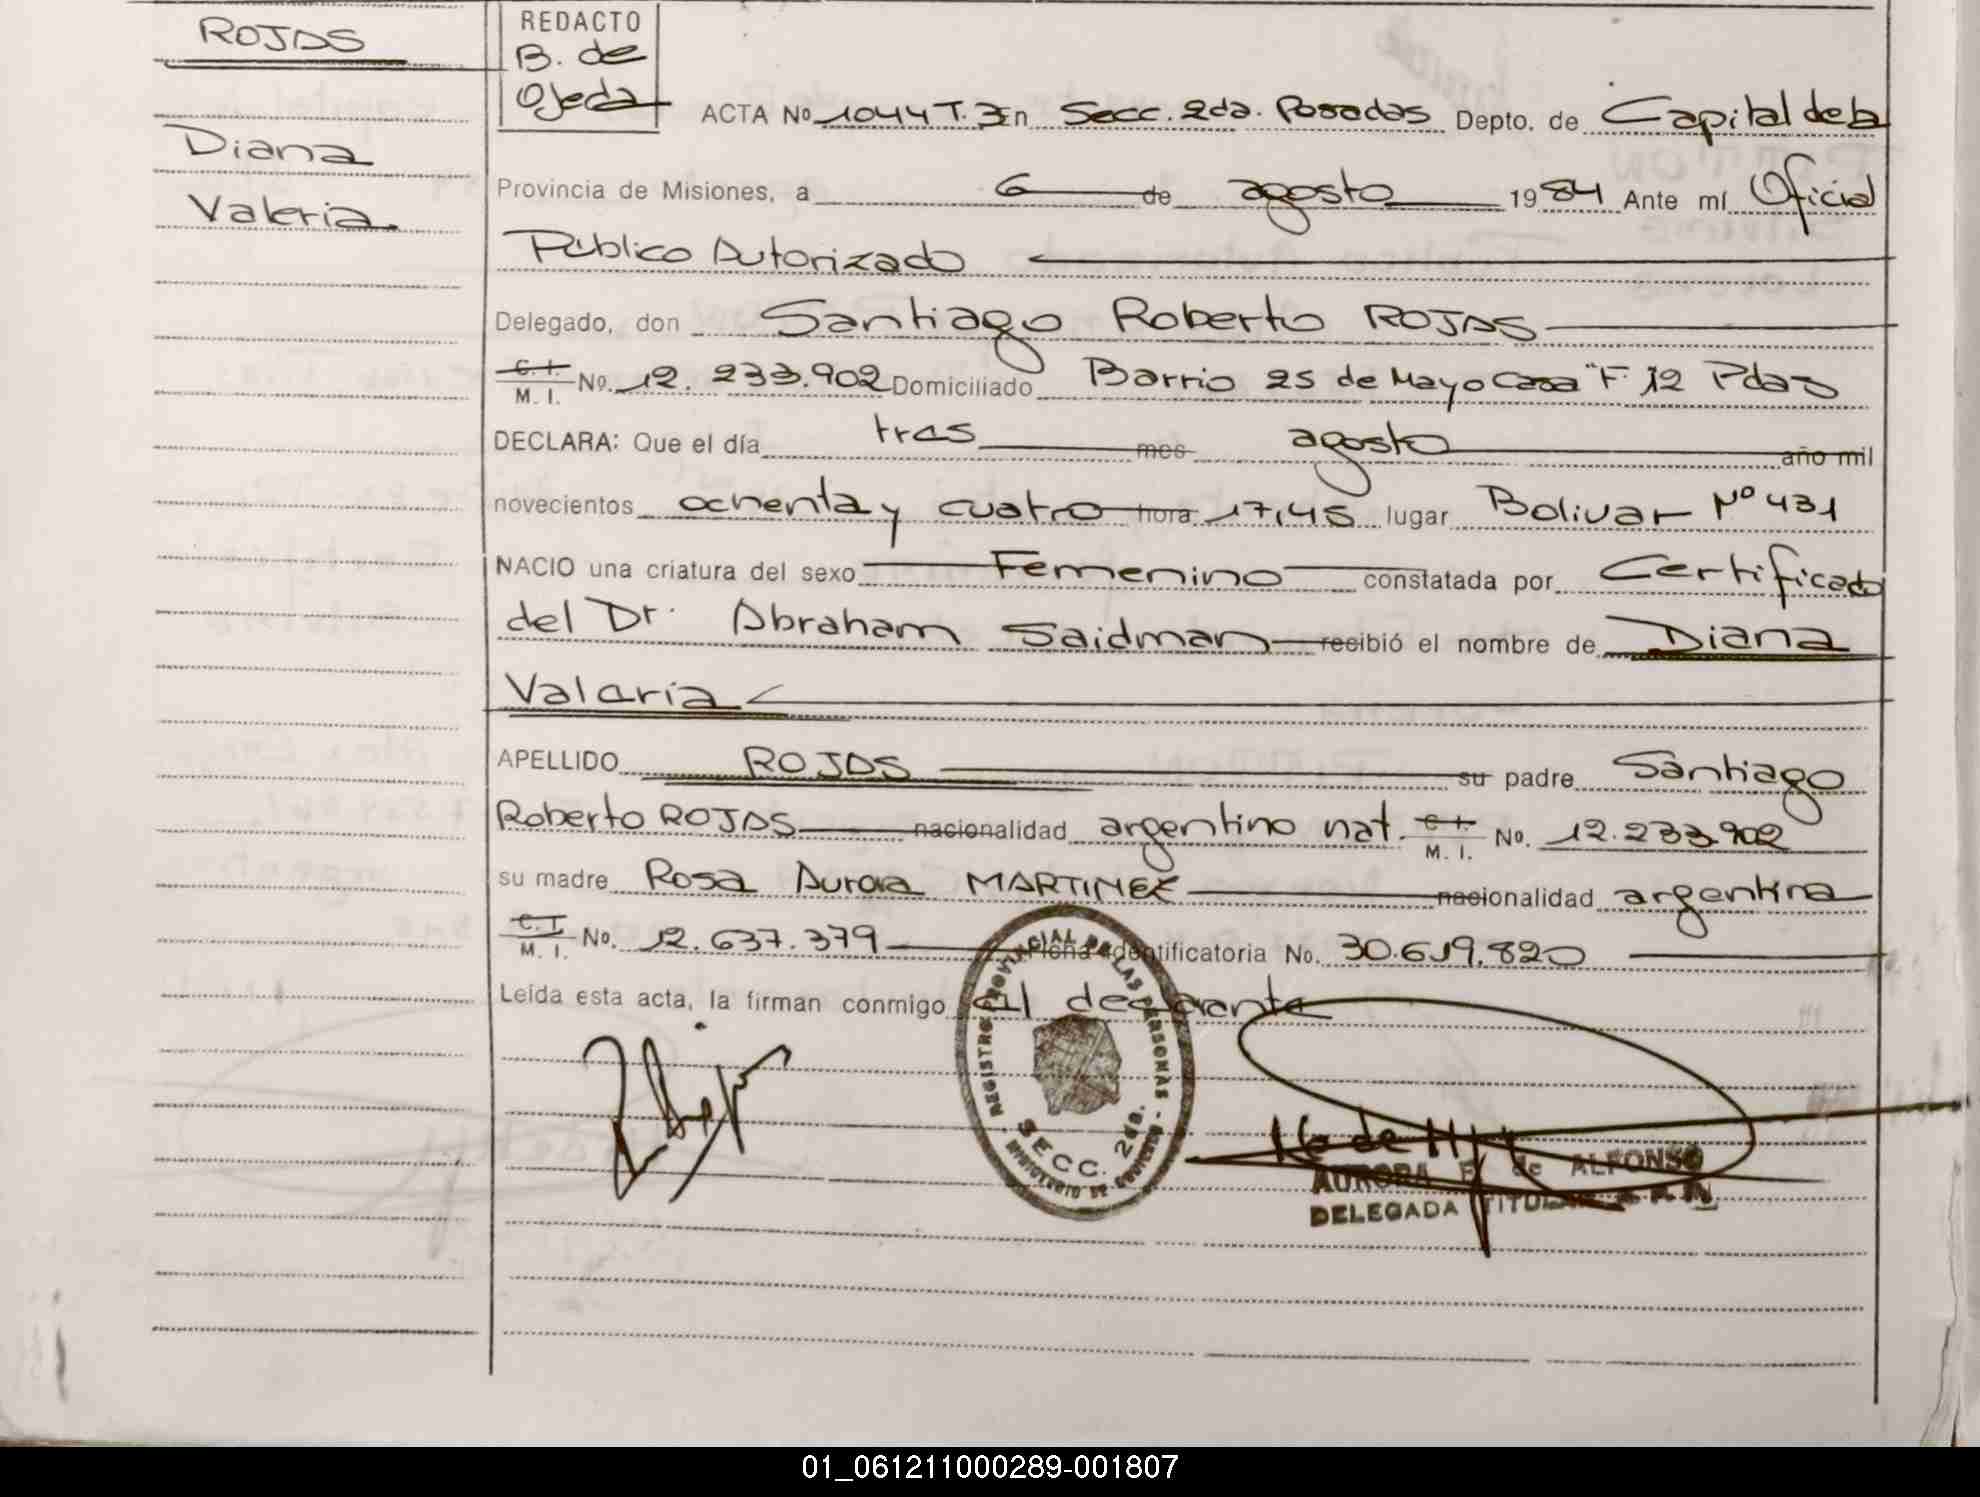 ROJAS
Diana
Valeria.
REDACTO
B. de
Ojeda
ACTA No 1044 T. 3 En Secc. 2da. Posadas Depto. de Capital de la
Provincia de Misiones, a 6 de agosto 1984 Ante mí Oficial
Público Autorizado
Delegado, don Santiago Roberto ROJAS
C. I.
M. I. No. 12. 233.902 Domiciliado Barrio 25 de Mayo Casa "F" 12 Pdas
DECLARA: Que el día tres mes agosto año mil
novecientos ochenta y cuatro hora 17,45 lugar Bolivar Nº 431
NACIO una criatura del sexo Femenino constatada por Certificado
del Dr. Abraham Saidman recibió el nombre de Diana
Valeria
APELLIDO ROJAS su padre Santiago
Roberto ROJAS nacionalidad argentino nat. C. I.
M. I. No. 12.233.902
su madre Rosa Aurora MARTINEZ nacionalidad argentina
C. I.
M. I. No. 12.637.379 Ficha identificatoria No. 30.619.820
Leída esta acta, la firman conmigo el declarante
REGISTRO PROVINCIAL DE LAS PERSONAS
SECC. 2da.
MINISTERIO DE GOBIERNO
AURORA F. de ALFONSO
DELEGADA TITULAR
01_061211000289-001807